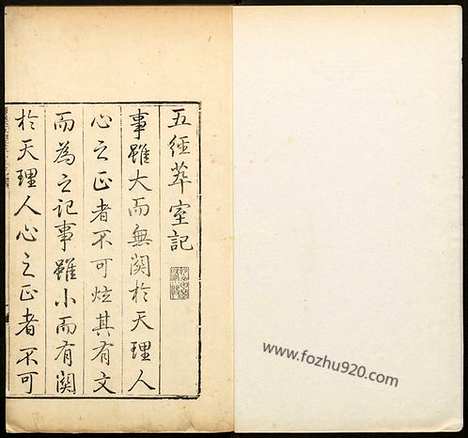 五經萃室記
事雖大而無關於天理人
心之正者不可炫其有文
而為之記事雖小而有關
於天理人心之正者不可
www.fozhu920.com